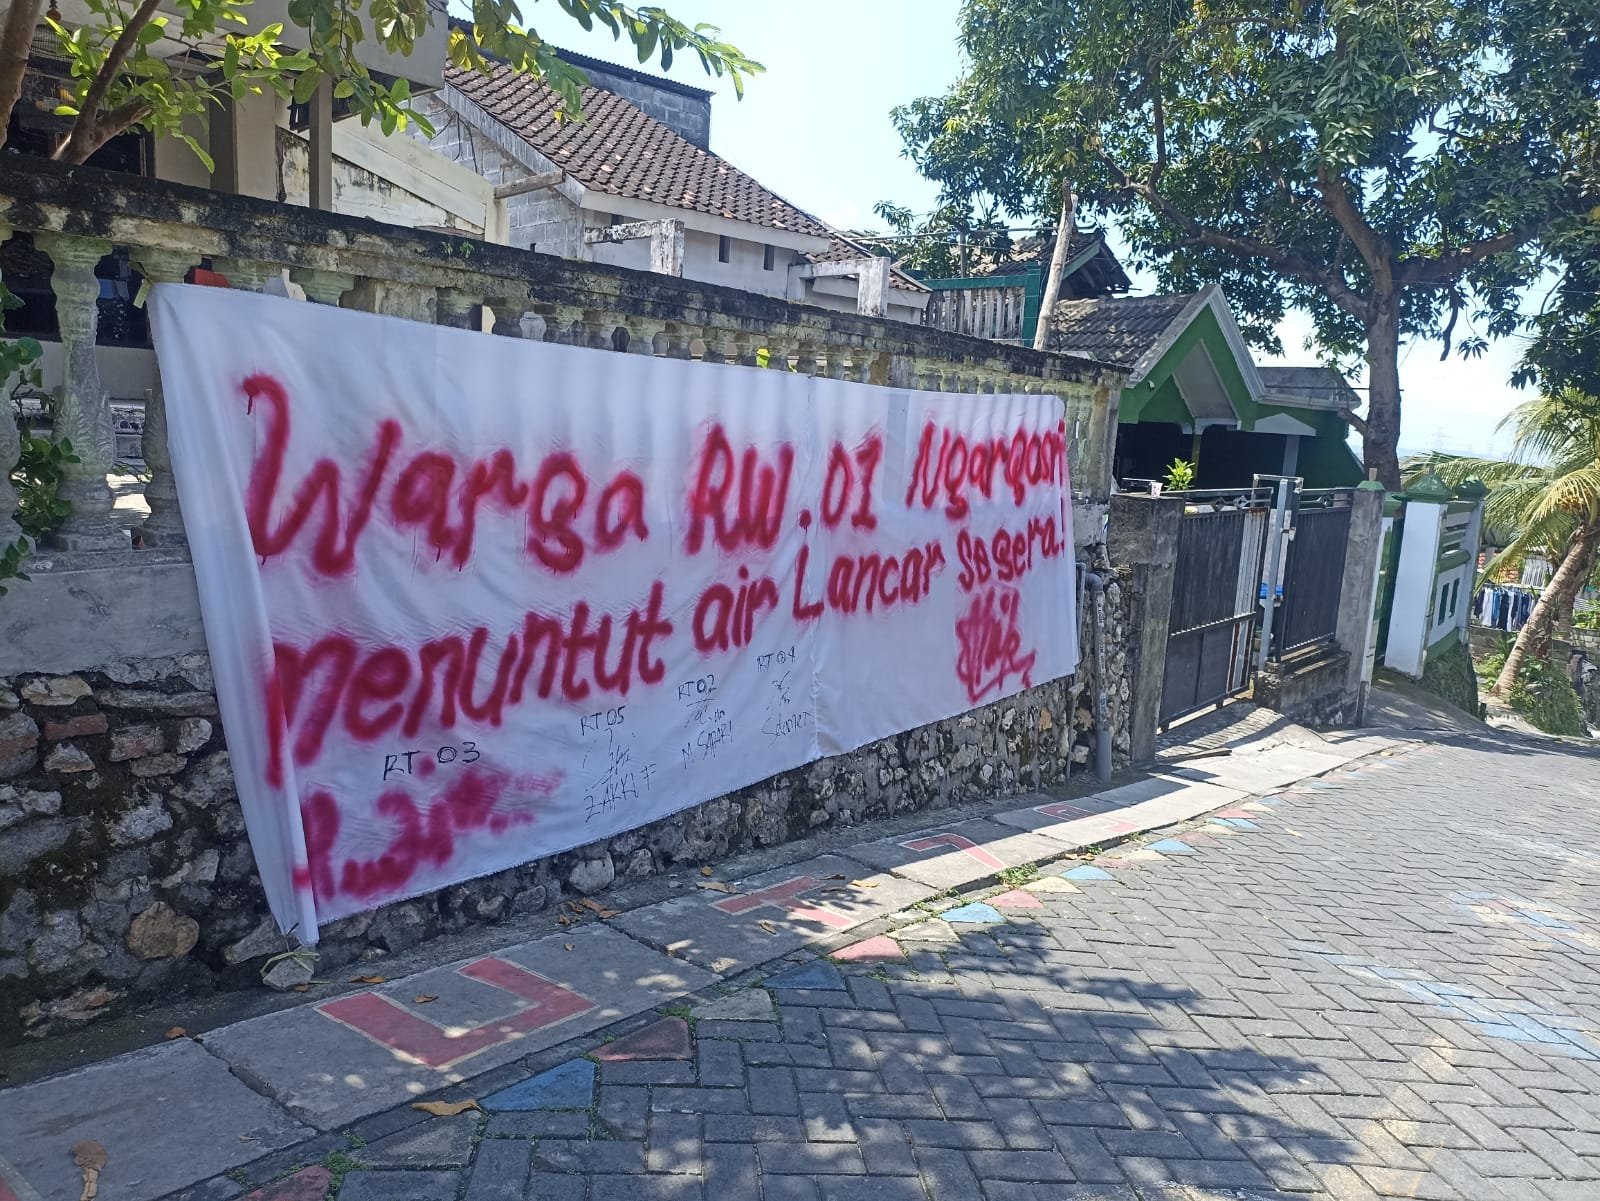 Warga RW.01 Ngargosari
menuntut air Lancar segera!
RT 03
RT 05
ZAKKI F
RT 02
M. SAPARI
RT 04